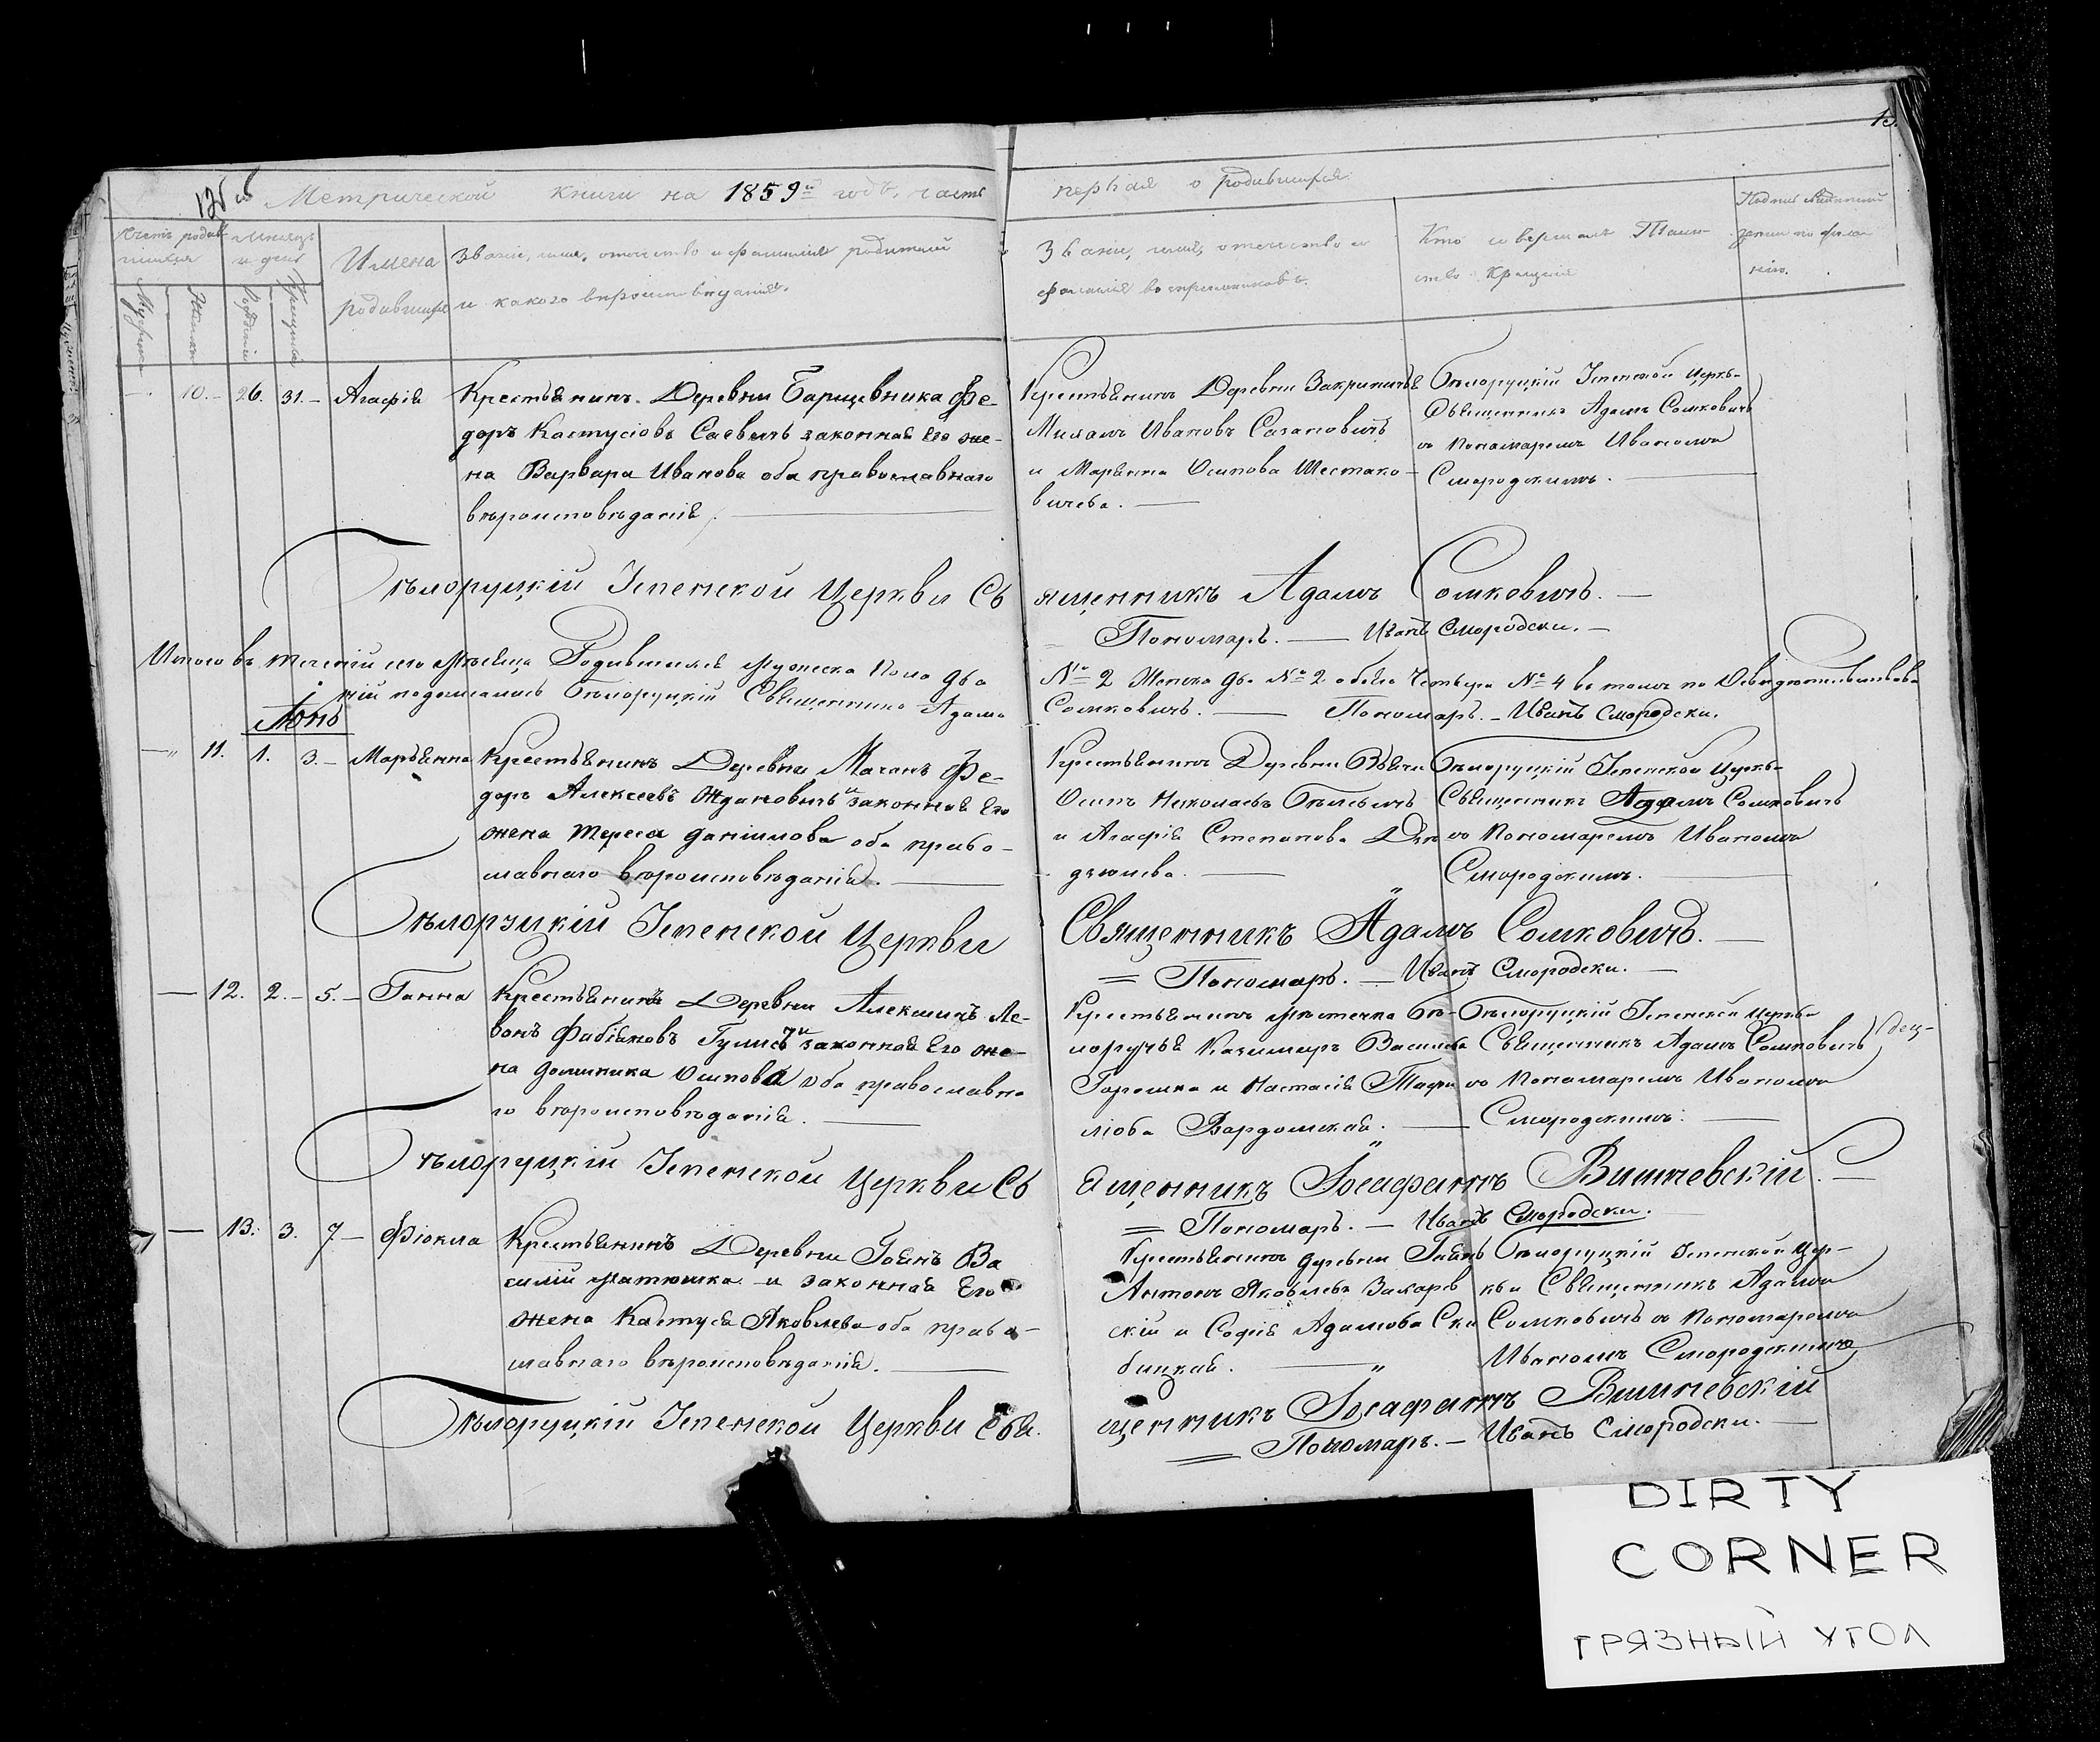 13.
Метрической книги на 1859й годъ, часть первая о родившихся.
Счетъ родившихся
Мѣсяцъ и день
Имена родившихся
Званіе, имя, отечество и фамилія родителей
и какого вѣроисповѣданія.
Званіе, имя, отечество и
фамилія воспріемниковъ.
Кто совершалъ Таин-
ство Крещенія
Мужеска
Женска
Рожденія
Крещенія
10. 26. 31. Агафія
Крестьянинъ Деревни Барщевника Фе-
доръ Кастусіовъ Саевичъ законная Его же-
на Варвара Иванова оба православнаго
вѣроисповѣданія.
Крестьянинъ Деревни Закриничья
Ивановъ Сазановичъ
и Марьянна Осипова Шестако-
вичева.
Бѣлоруцкій Успенской Церкв
Священникъ Адамъ Сомковичъ
съ Пономаремъ Иваномъ
Смородскимъ.
Бѣлоруцкій Успенской Церкви Священникъ Адамъ Сомковичъ.
Пономаръ. Иванъ Смородски.
Итого въ теченіи сего Мѣсяца Родившихся Мужеска Пола два № 2 Женска два № 2 обоего Четыре № 4 въ томъ по
Бѣлоруцкій Священникъ Адамъ Сомковичъ. Пономаръ. Иванъ Смородски.
Іюнь
11. 1. 3. Марьянна
Крестьянинъ Деревни Мачанъ Фе-
доръ Алексеевъ Ждановичъ и законная Его
жена Тереса Даніилова оба право-
славнаго вѣроисповѣданія.
Крестьянинъ Деревни Вьячи
Осипъ Николаевъ
и Агафія Степанова
Бѣлоруцкій Успенской Церкв
Священникъ Адамъ Сомковичъ
съ Пономаремъ Иваномъ
Смородскимъ.
Бѣлоруцкій Успенской Церкви Священникъ Адамъ Сомковичъ.
Пономаръ. Иванъ Смородски.
12. 2. 5. Ганна
Крестьянинъ Деревни Алекшичъ Ле-
вонъ Фабіяновъ и законная Его же-
на Доминика Осипова оба православна
го вѣроисповѣданія.
Крестьянинъ мѣстечка Бѣ-
лоручья Казимиръ Васильевъ
Горошка и Настасія
Бѣлоруцкій Успенской Церкв
Священникъ Адамъ Сомковичъ
съ Пономаремъ Иваномъ
Смородскимъ.
Бѣлоруцкій Успенской Церкви Священникъ Іосафатъ Вишневскій.
Пономаръ. Иванъ Смородски.
13. 3. 7. Фіокла
Крестьянинъ Деревни Гаянъ Ва
силій Матюшка и законная Его
жена Кастуся Яковлева оба право-
славнаго вѣроисповѣданія.
Крестьянинъ деревни Гаянъ
Антонъ Яковлевъ Захарев
скій и Софія Адамова Ски
бицкая.
Бѣлоруцкій Успенской Цер-
кви Священникъ Адамъ
Сомковичъ съ Пономаремъ
Иваномъ Смородскимъ
Бѣлоруцкій Успенской Церкви Священникъ Іосафатъ Вишневскій
Пономаръ. Иванъ Смородски.
DIRTY
CORNER
ГРЯЗНЫЙ УГОЛ